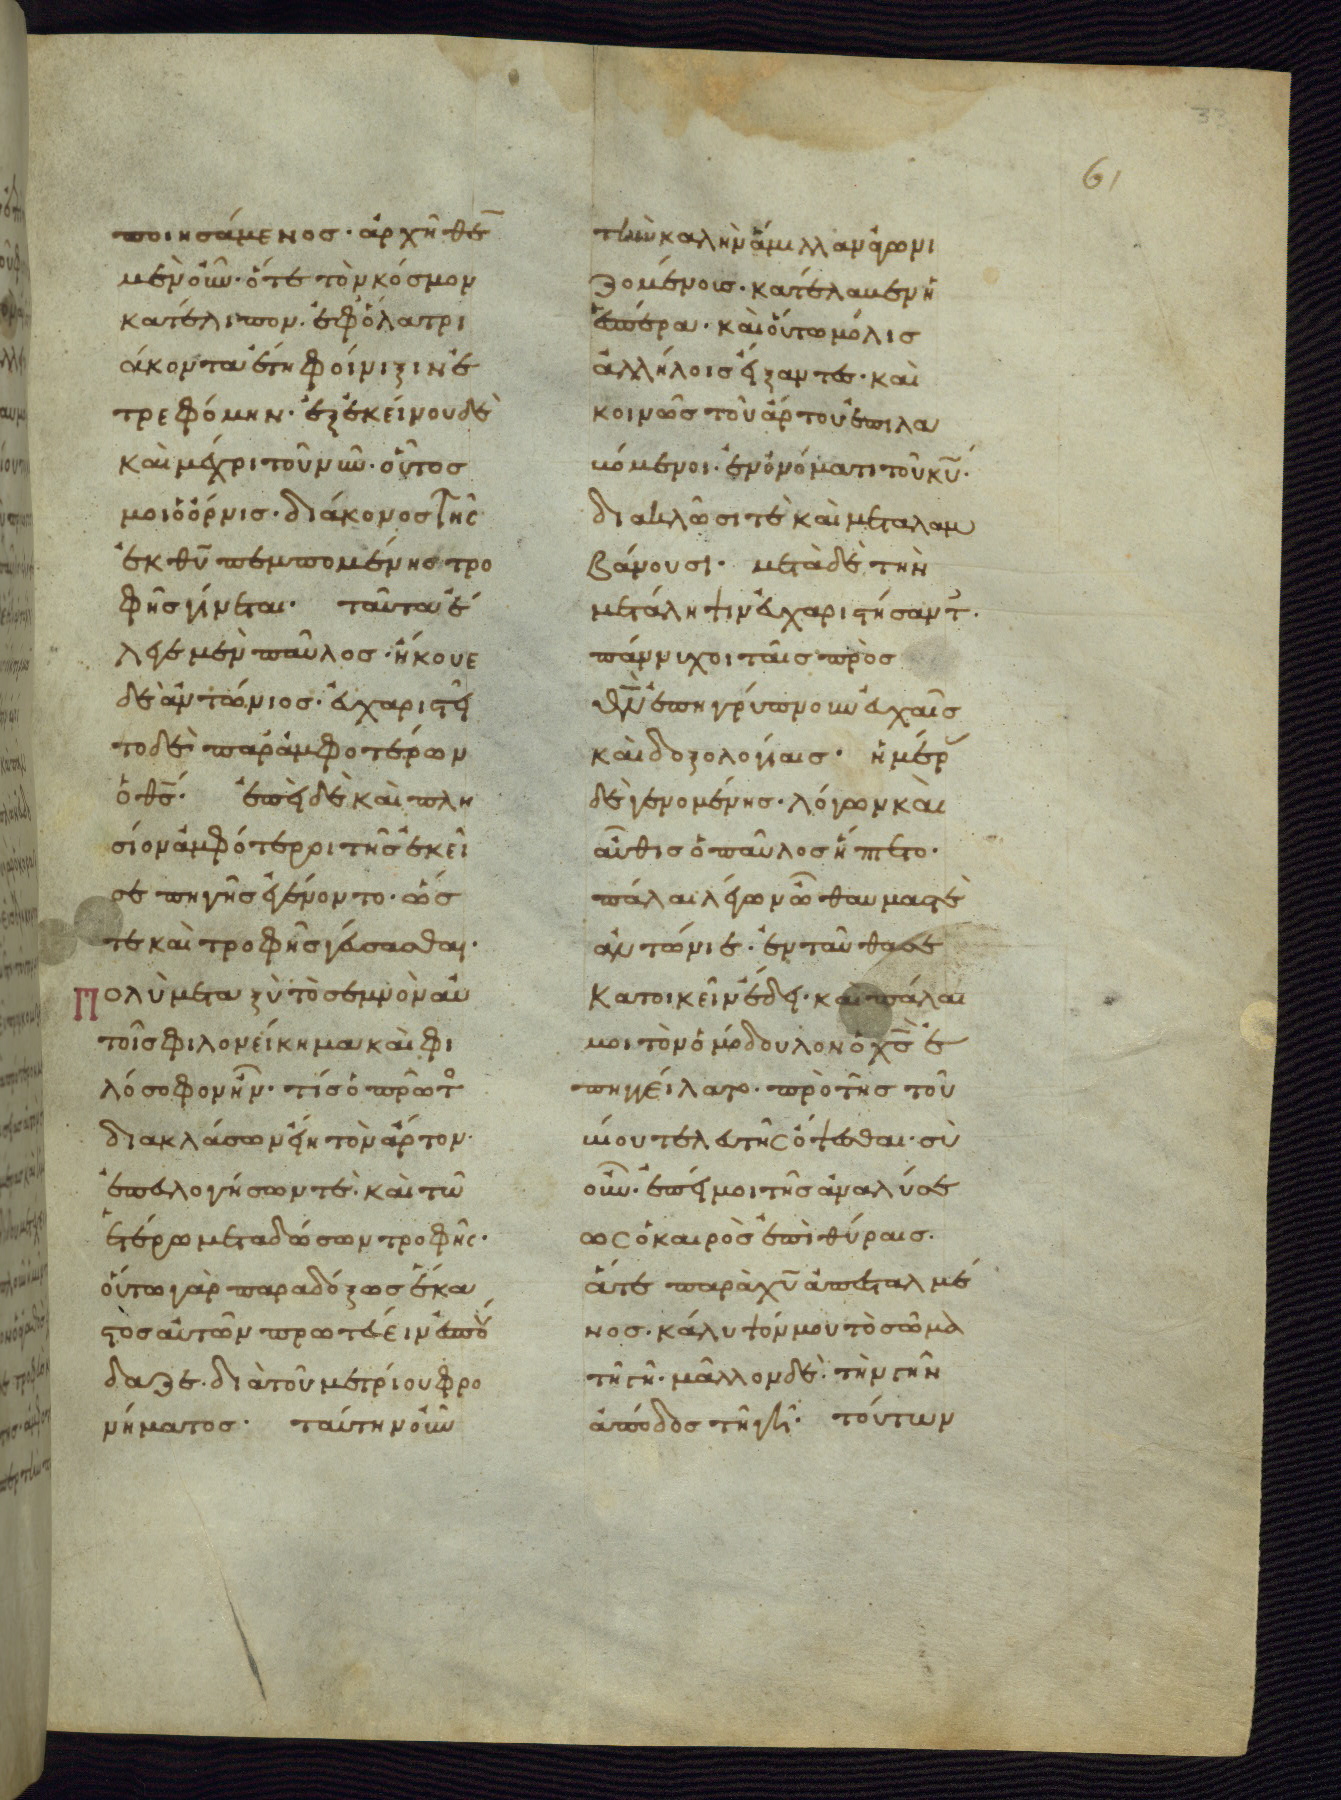 33
61
ποιησάμενος· ἀρχῆθε̅
μὲν οὖν· ὅτε τὸν κόσμον
κατέλιπον· ἐφ' ὅλα τρι
άκοντα ἔτη φοίνιξιν ἐ
τρεφόμην· ἐξ ἐκείνου δὲ
καὶ μέχρι τοῦ νῦν· οὗτος
μοι ὁ ὄρνις· διάκονος τῆς
ἐκ θυ̅ πεμπομένης τρο
φῆς γίνεται· ταῦτα ἔ
λεγε μὲν παῦλος· ἤκουε
δὲ ἀντώνιος· εὐχαριστεῖ
το δὲ παρ' ἀμφοτέρων
ὁ θς̅· ἐπεὶ δὲ καὶ πλη
σίον ἀμφότεροι τῆς ἐκεῖ
σε πηγῆς ἐγένοντο· ὥσ
τε καὶ τροφῆς γεύσασθαι·
Πολὺ μεταξὺ τὸ σεμνὸν αὐ
τοῖς φιλονείκημα καὶ φι
λόσοφον ἦν· τίς ὁ πρῶτο
διακλάσων εἴη τὸν ἄρτον·
ἐπευλογήσων τέ· καὶ τῶ
ἑτέρω μεταδώσων τροφῆς·
οὕτω γὰρ παραδόξως ἕκα
στος αὐτῶν πρωτεύειν ἐσπού
δαζε· διὰ τοῦ μετρίου φρο
νήματος· ταύτην οὖν
τὴν καλὴν ἅμιλλαν ἀγωνι
ζομένοις· κατέλαβεν ἡ
ἑσπέρα· καὶ οὕτω μόλις
ἀλλήλοις εἴξαντες· καὶ
κοινῶς τοῦ ἄρτου ἐπιλα
βόμενοι· ἐν ὀνόματι τοῦ κυ̅·
διακλῶσί τε καὶ μεταλαμ
βάνουσι· μετὰ δὲ τὴν
μετάληψιν εὐχαριστήσαντ·
πάννυχοι ταῖς πρὸς
θν̅ ἐπηγρύπνουν εὐχαῖς
καὶ δοξολογίαις· ἡμέρ
δὲ γενομένης· λόγων καὶ
αὖθις ὁ παῦλος ἥπτετο·
πάλαι λέγων ὦ θαυμαστὲ
ἀντώνιε· ἐνταῦθα σε
κατοικεῖν ἤδειν· καὶ πάλαι
μοι τὸν ὁμόδουλον ὁ χς̅ ἐ
πηγγείλατο· πρὸ τῆς τοῦ
βίου τελευτῆς ὄψεσθαι· σὺ
οὖν· ἐπεί μοι τῆς ἀναλύσε
ως ὁ καιρὸς ἐπὶ θύραις·
ἅτε παρὰ χυ̅ ἀπεσταλμέ
νος· κάλυψόν μου τὸ σῶμα
τῆ γῆ· μᾶλλον δὲ· τὴν γῆν
ἀπόδος τῆ γῆ· τούτων